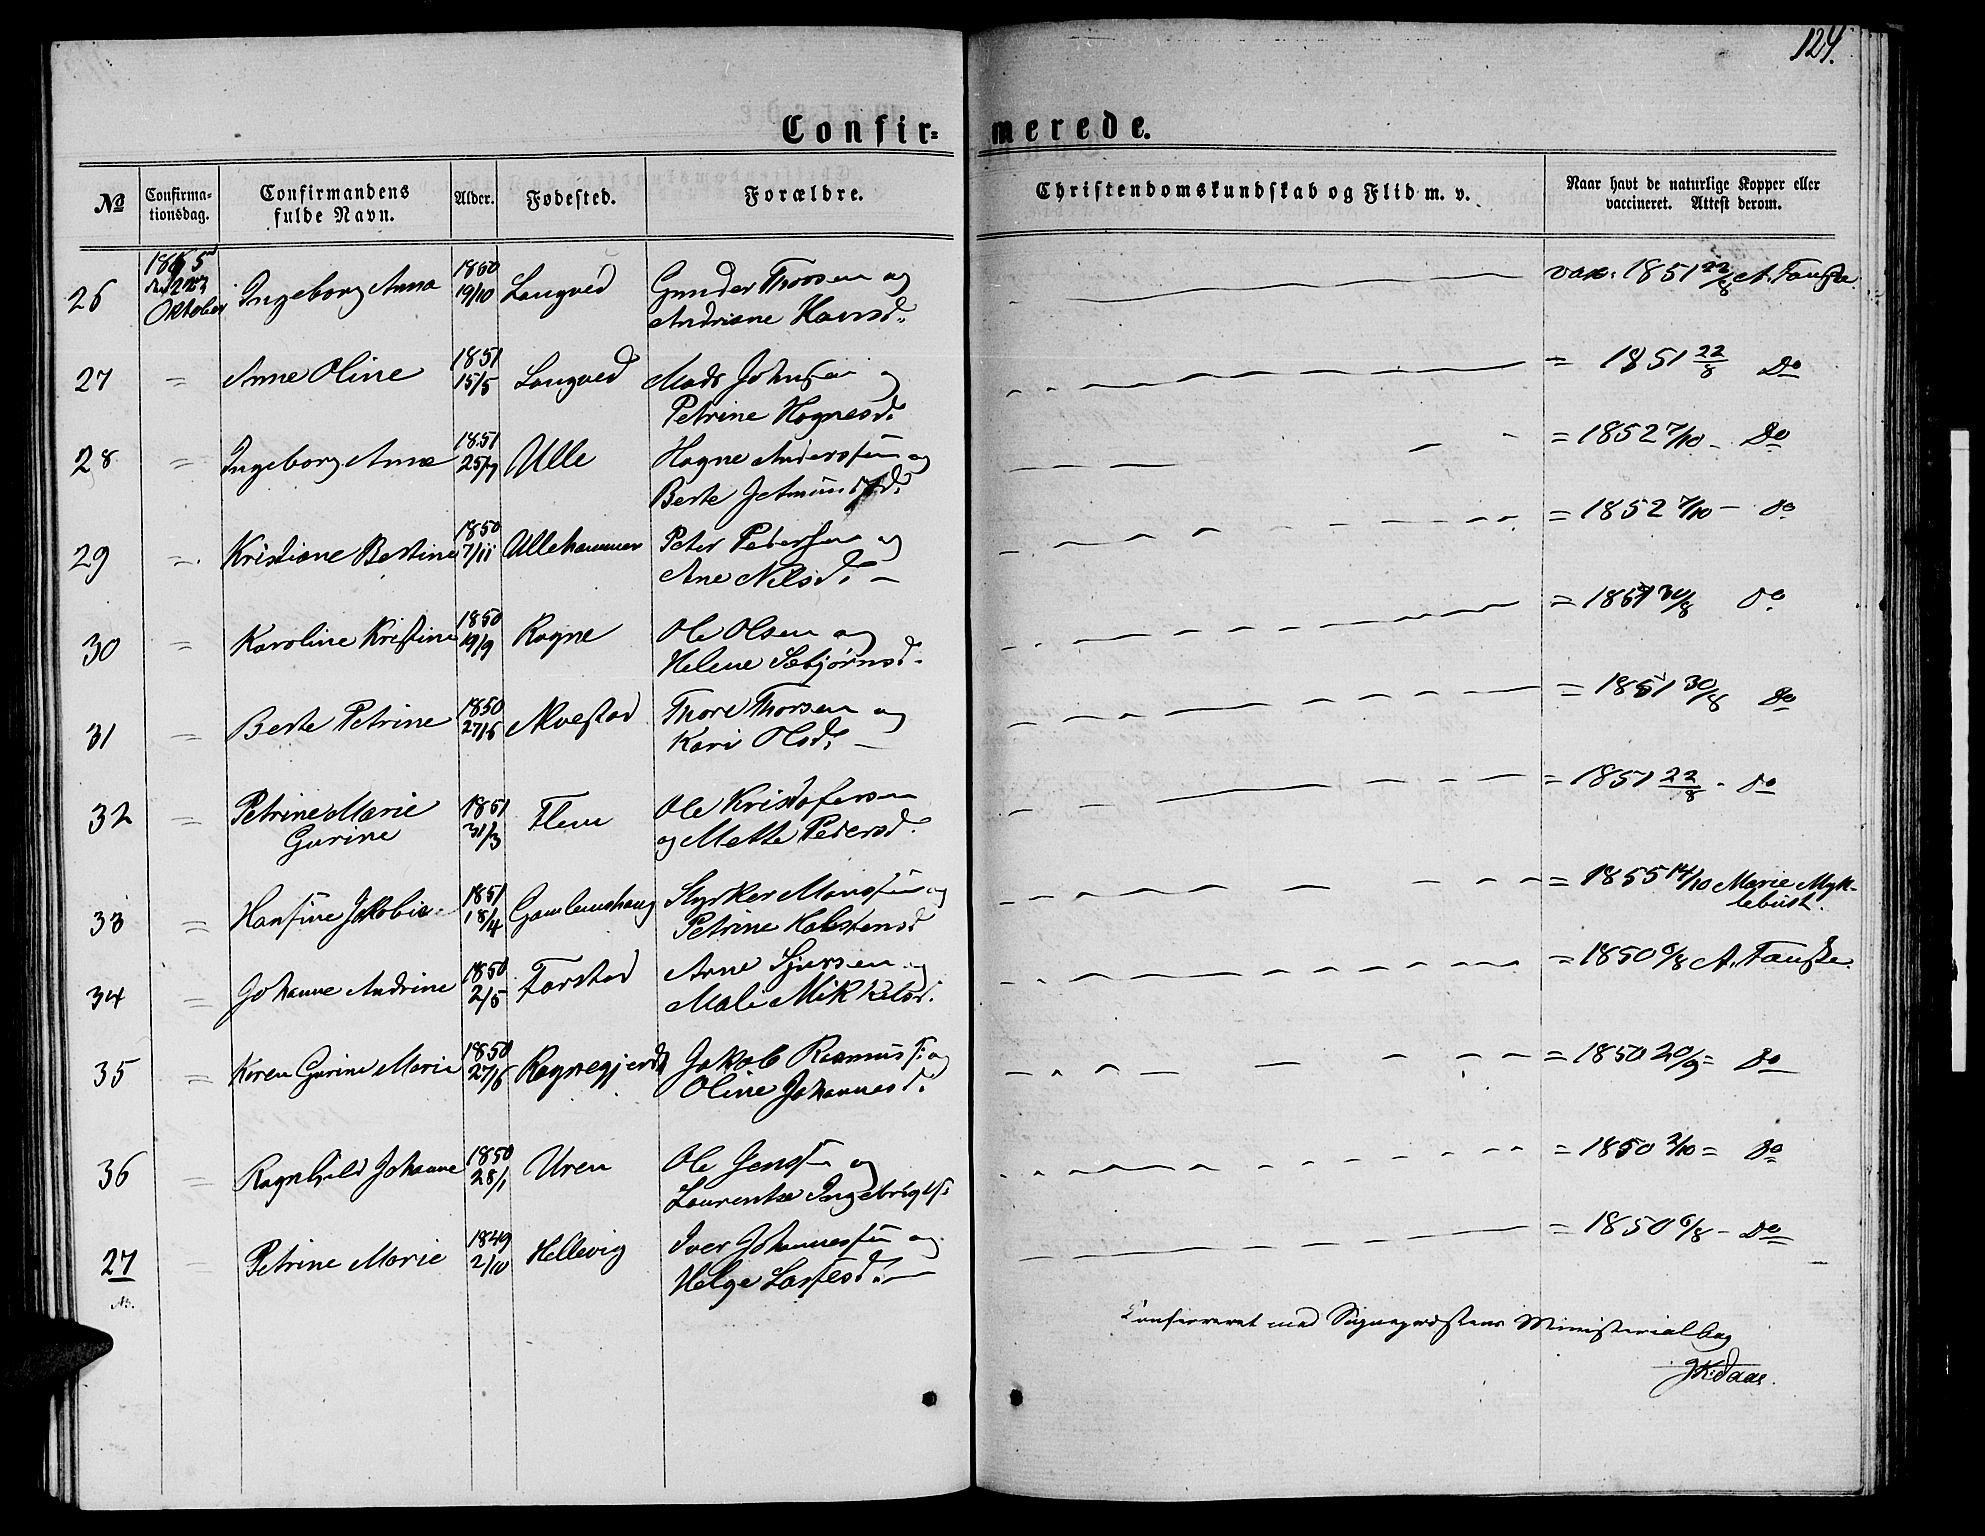 124.
Confir= merede.
№ Confirma-tionsdag. Confirmandens fulde Navn. Alder. Fødested. Forældre. Christendomskundskab og Flid m. v. Naar havt de naturlige Kopper eller vaccineret. Attest derom.
1865
Oktober
26 Ingeborg Anna 1850 19/10 Langved Gunder Thorsen og vax. 1851 22/8 A. Fauske.
Andriane Hansd.
27 = Anne Oline 1851 15/5 Langved Mads Johnsen og = 1851 22/8 Do
Petrine Hognesd.
28 = Ingeborg Anna 1851 25/7 Ulle Hogne Andersen og = 1852 7/10 - Do
Berte Jetmundsd.
29 = Kristiane Bertine 1850 7/11 Ullehammer Peter Pedersen og = 1852 7/10 - Do
Ane Nilsd. -
30 = Karoline Kristine 1850 19/9 Rogne Ole Olsen og = 1851 30/8 Do
Helene Sæbjørnsd.
31 = Berte Petrine 1850 27/6 Alvestad Thore Thorsen og = 1851 30/8 Do
Kari Olsd. -
32 = Petrine Marie 1851 31/3 Flem Ole Kristofersen = 1851 22/8 - Do
Gurine og Mette Pedersd.
33 = Hansine Jakobia 1851 18/4 Gamlemshaug Styrker Monsen og = 1855 14/10 Marie Myk-
Petrine Halstensd lebust.
34 = Johanne Andrine 1850 2/5 Farstad Arne Sjursen og = 1850 6/8 A. Fauske.
Mali Mikkelsd.
35 = Karen Gurine Marie 1850 27/6 Rognegjerde Jakob Rasmus f: og = 1850 20/9 = Do
Oline Johannesd.
36 = Ragnhild Johanne 1850 28/1 Uren Ole Jensen og = 1850 2/10 = Do
Laurentse Ingebrigtf.
27 = Petrine Marie 1849 2/10 Hellevig Iver Johannessen og = 1850 6/8 - Do
Helge Larsesd. -
Confereret med Sognepræstens Ministerialbog
JK. Daae.